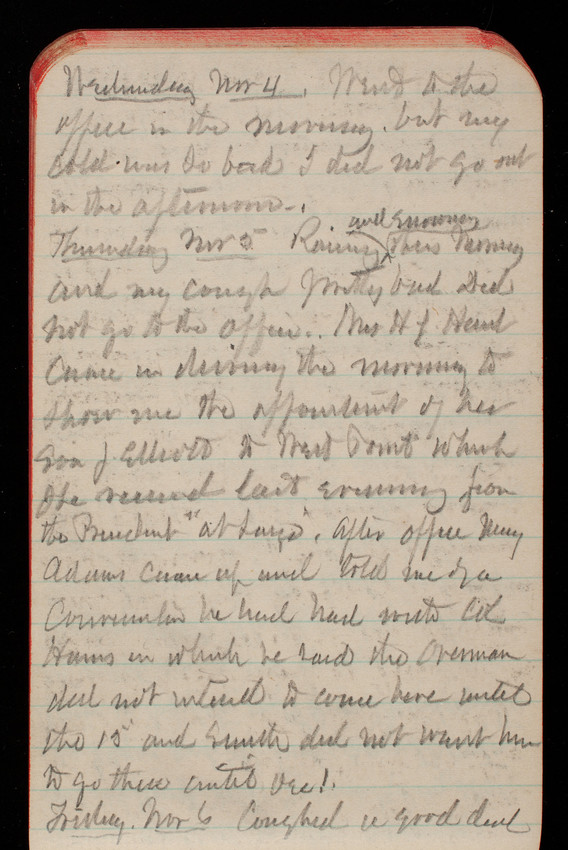 Wednesday Nov 4. Went to the
office in the morning. but my
cold was so bad I did not go out
in the afternoon.
and Snowing
Thursday Nov 5 Rainy this morning
and my cough pretty bad Did
not go to the office. Mrs H J Hand
Came in during the morning to
show me the appointment of her
Son J. Elliott to West Point which
she received last evening from
the President "at Large". After office
Adams came up and told me of a
Conversation he had had with Col
in which he said the Overman
did not intend to come here until
the 15 and Smith did not want him
to go there until Dec 1.
Friday. Nov 6 Coughed a good deal